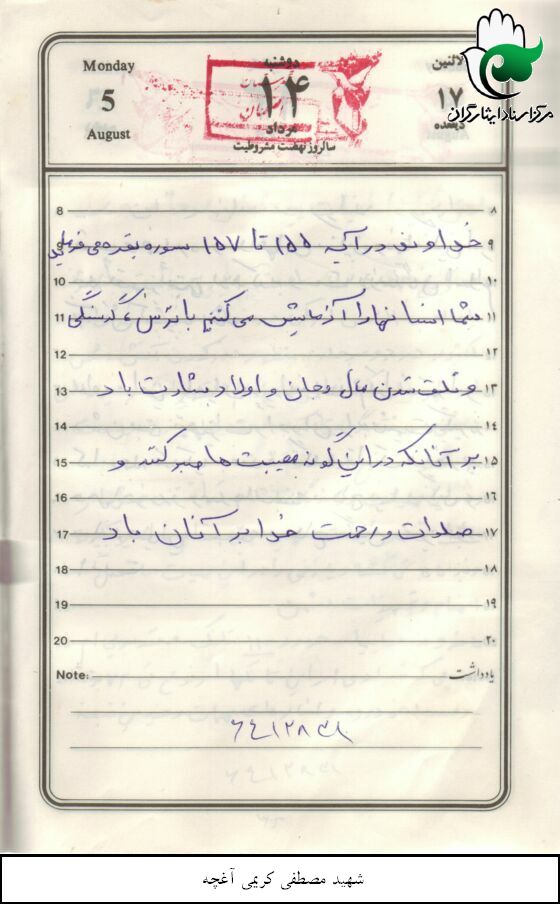 Monday
5
August
دوشنبه
۱۴
مرداد
سالروز نهضت مشروطیت
الاثنین
۱۷
ذیقعده
مرکز اسناد ایثارگران
8 ۸
9 خداوند در آیه ۱۵۵ تا ۱۵۷ سوره بقره می فرماید ۹
10 ۱۰
11 شما انسانها را آزمایش می کنم با ترس، گرسنگی ۱۱
12 ۱۲
13 و تلف شدن مال و جان و اولاد بشارت باد ۱۳
14 ۱۴
15 بر آنانکه در این گونه مصیبت ها صبر کنند و ۱۵
16 ۱۶
17 صلوات و رحمت خدا بر آنان باد ۱۷
18 ۱۸
19 ۱۹
20 ۲۰
Note: یادداشت
شهید مصطفی کریمی آغچه